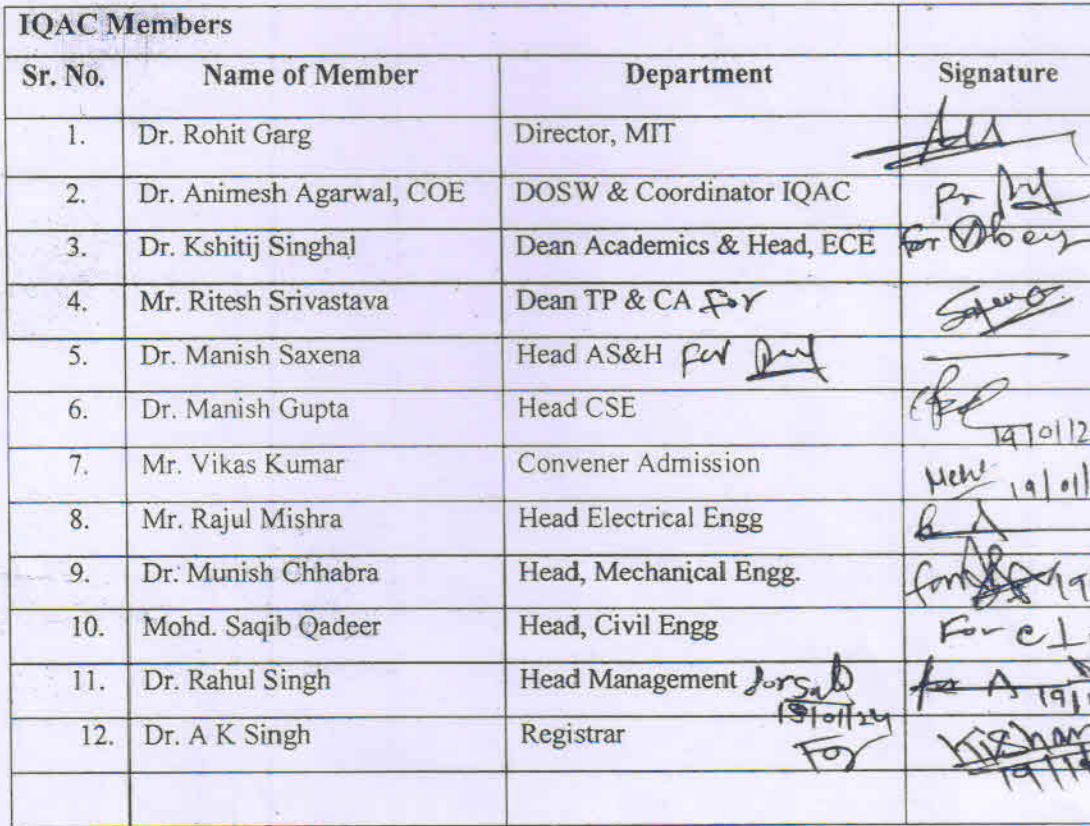 IQAC Members
Sr. No. Name of Member Department Signature
1. Dr. Rohit Garg Director, MIT
2. Dr. Animesh Agarwal, COE DOSW & Coordinator IQAC
3. Dr. Kshitij Singhal Dean Academics & Head, ECE for
4. Mr. Ritesh Srivastava Dean TP & CA For
5. Dr. Manish Saxena Head AS&H For
6. Dr. Manish Gupta Head CSE
19/01/2
7. Mr. Vikas Kumar Convener Admission 19/01/
8. Mr. Rajul Mishra Head Electrical Engg
9. Dr. Munish Chhabra Head, Mechanical Engg. for 19
10. Mohd. Saqib Qadeer Head, Civil Engg For
11. Dr. Rahul Singh Head Management for
19/01/24
12. Dr. A K Singh Registrar For Kishan